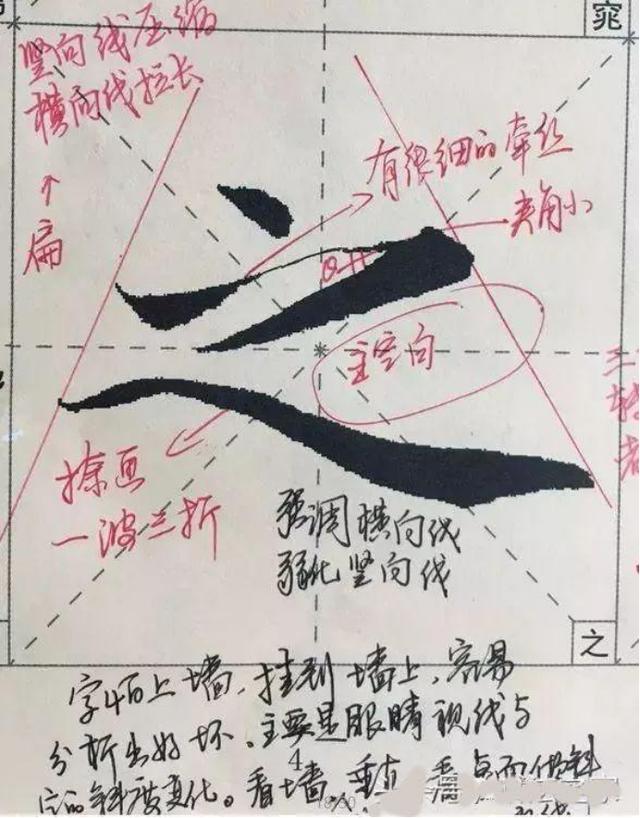 窕
竖向线压缩
横向线拉长
↑
扁
有很细的牵丝
夹角小
主空向
捺画
一波三折
强调横向线
弱化竖向线
之
字帖上墙，挂到墙上，容易
分析出好坏。主要是眼睛视线与
斜度变化。看墙
4